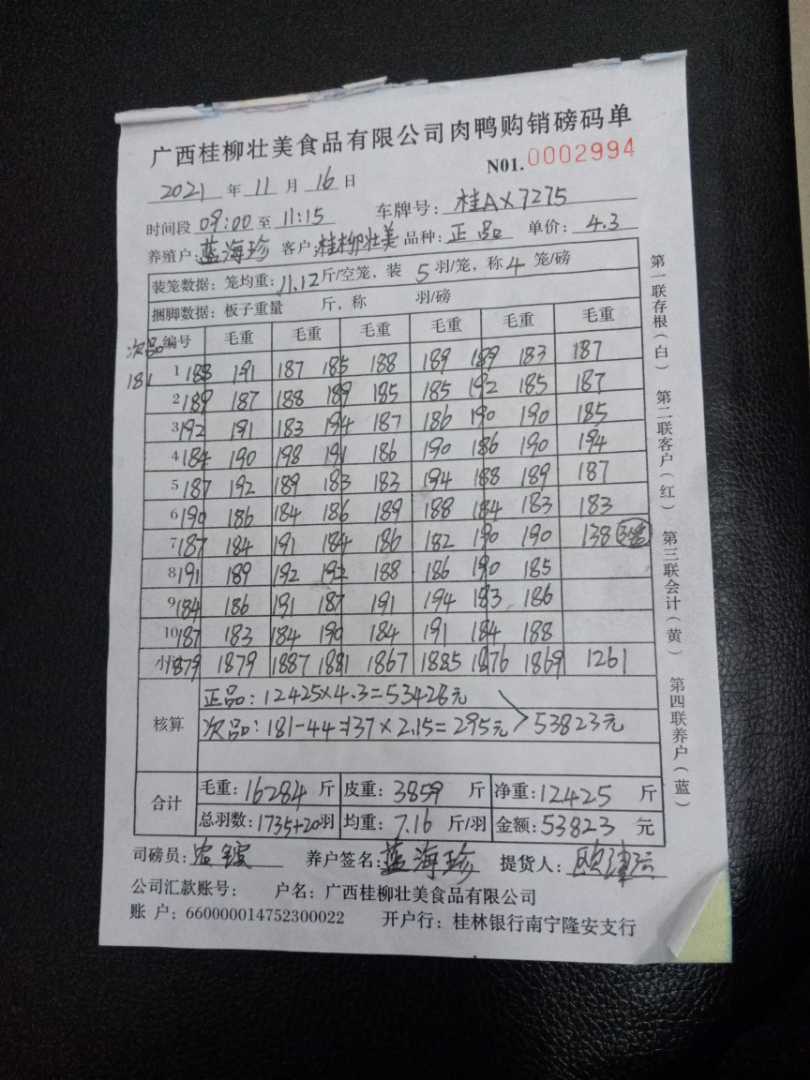 广西桂柳壮美食品有限公司肉鸭购销磅码单
N01.0002994
2021 年 11 月 16 日
时间段 09:00 至 11:15 车牌号: 桂AX7275
养殖户: 蓝海珍 客户: 桂柳壮美 品种: 正品 单价: 4.3
装笼数据: 笼均重: 11.12 斤/空笼, 装 5 羽/笼, 称 4 笼/磅
捆脚数据: 板子重量 斤, 称 羽/磅
次品 编号 毛重 毛重 毛重 毛重 毛重 毛重
181 1 188 191 187 185 188 189 189 183 187
2 189 187 188 189 185 185 192 185 187
3 192 191 183 194 187 186 190 190 185
4 184 190 198 191 186 190 186 190 194
5 187 192 189 183 183 194 188 189 187
6 190 186 184 186 189 188 184 183 183
7 187 184 191 184 186 182 190 190 138
8 191 189 192 192 188 186 190 185
9 184 186 191 187 191 194 183 186
10 187 183 184 190 184 191 184 188
小计 1879 1879 1887 1881 1867 1885 1876 1869 1261
核算
正品: 12425×4.3=53428元
次品: 181-44=137×2.15=295元 > 53823元
合计
毛重: 16284 斤 皮重: 3859 斤 净重: 12425 斤
总羽数: 1735+20羽 均重: 7.16 斤/羽 金额: 53823 元
司磅员: 养户签名: 蓝海珍 提货人:
公司汇款账号: 户名: 广西桂柳壮美食品有限公司
账 户: 660000014752300022 开户行: 桂林银行南宁隆安支行
第一联存根(白) 第二联客户(红) 第三联会计(黄) 第四联养户(蓝)